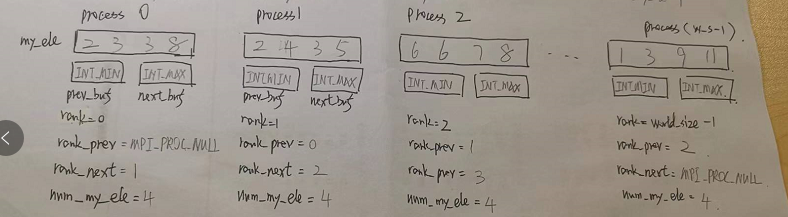 process 0
my_ele 2 3 3 8
INT_MIN INT_MAX
prev_buf next_buf
rank=0
rank_prev = MPI_PROC_NULL
rank_next = 1
num_my_ele = 4
process 1
2 4 3 5
INT_MIN INT_MAX
prev_buf next_buf
rank=1
rank_prev = 0
rank_next = 2
num_my_ele = 4
process 2
6 6 7 8
INT_MIN INT_MAX
rank=2
rank_prev = 1
rank_prev = 3
num_my_ele = 4
...
process (w_s-1)
1 3 9 11
INT_MIN INT_MAX
rank= world_size -1
rank_prev = 2
rank_next = MPI_PROC_NULL
num_my_ele = 4